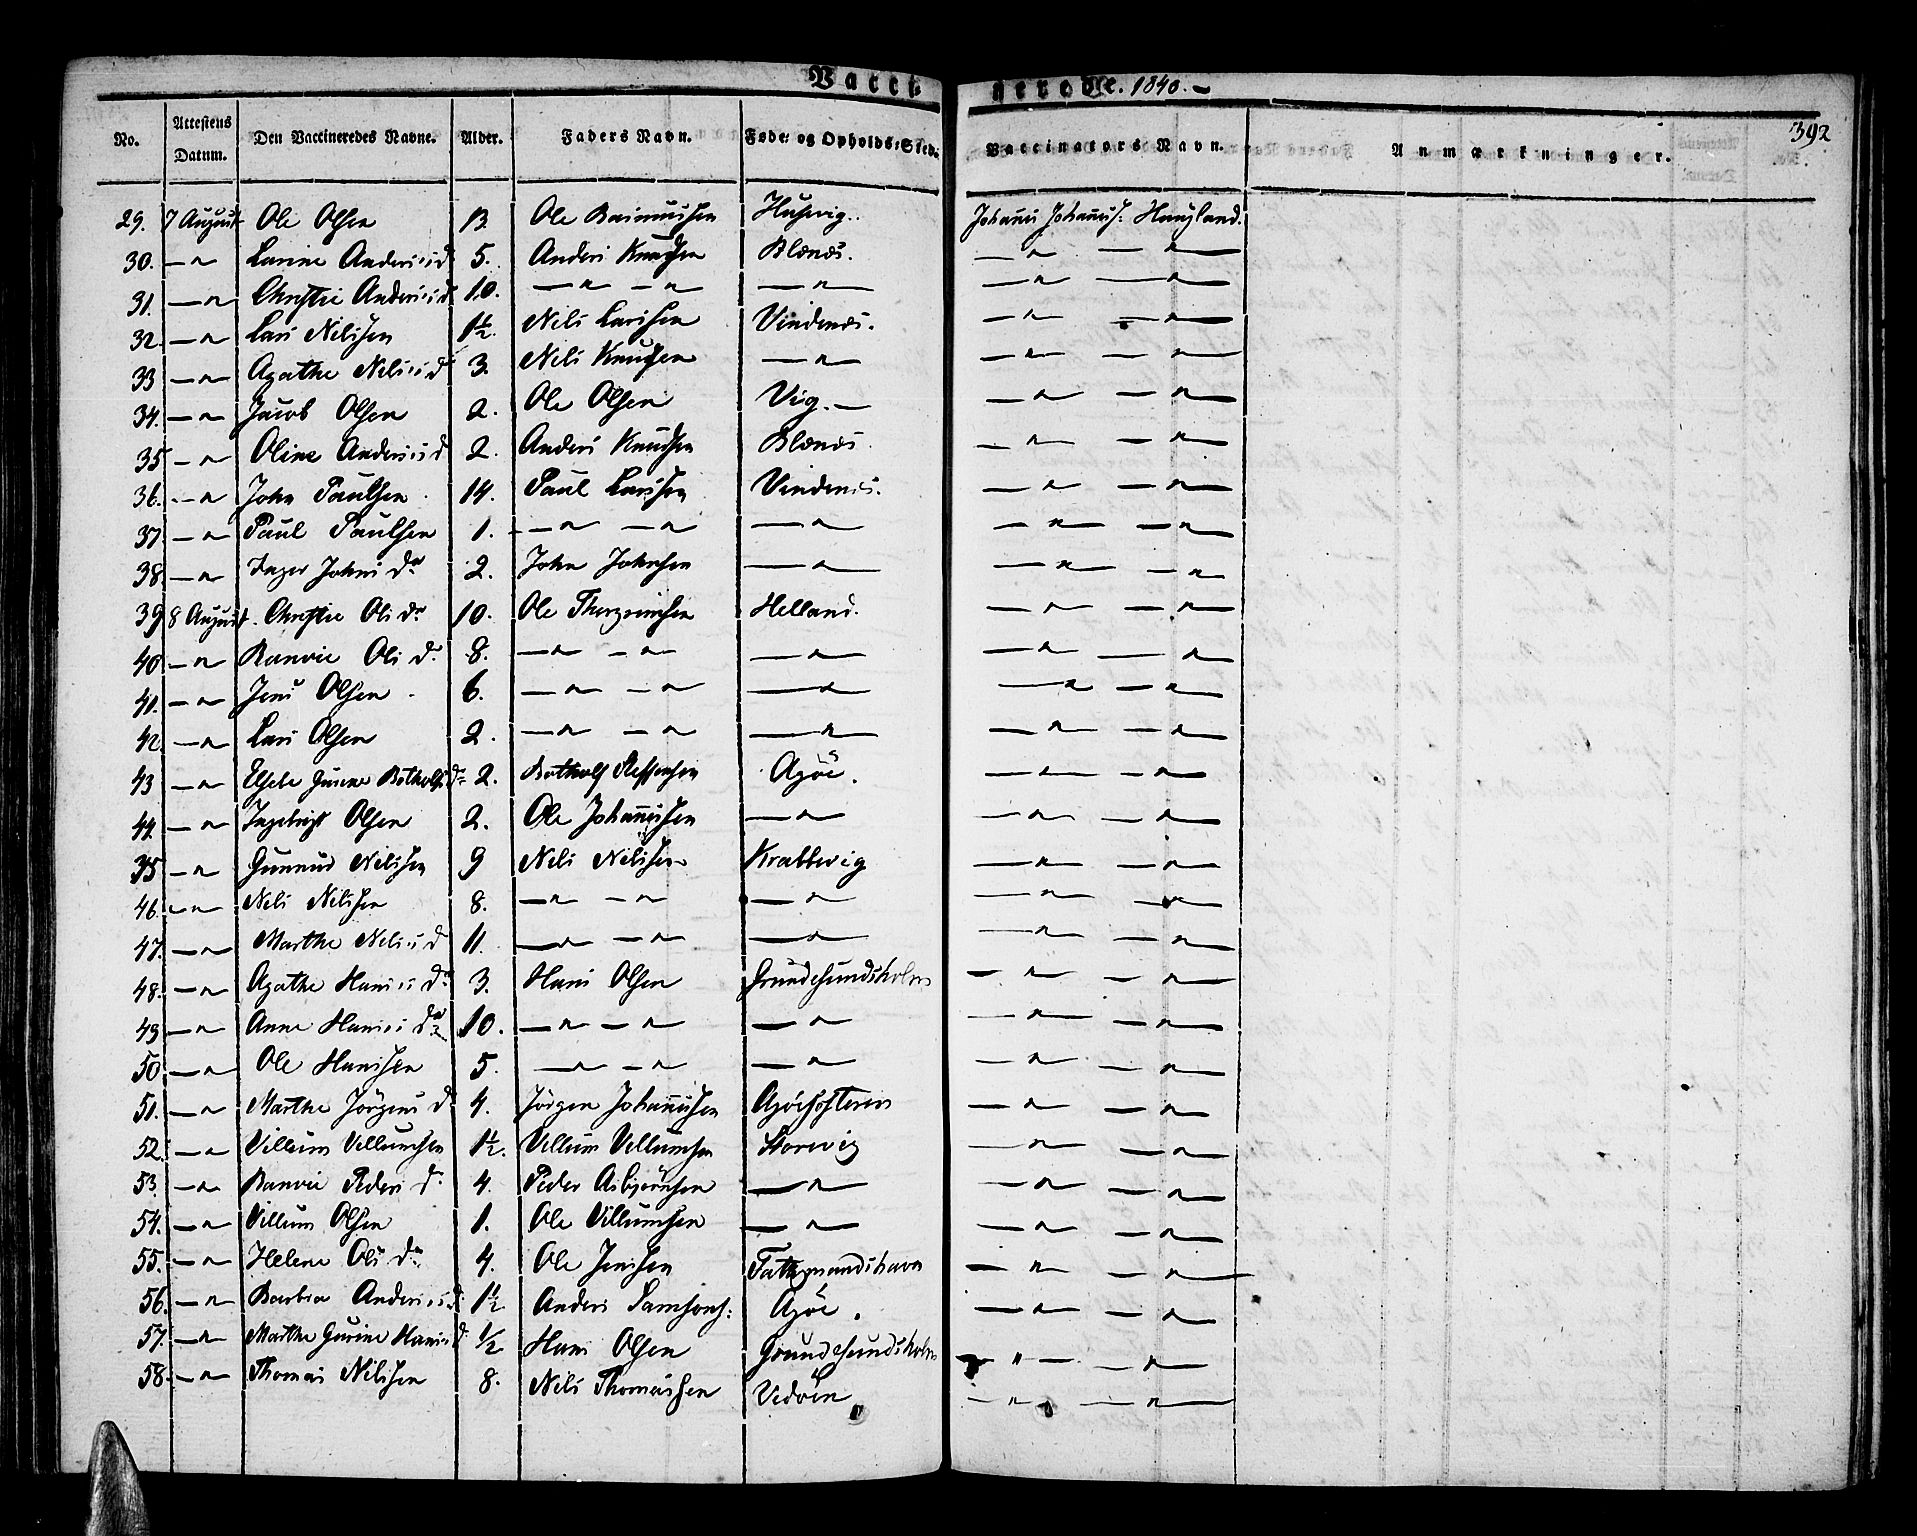 Vacci nerede. 1840.
392
No. Attestens Datum. Den Vaccineredes Navne. Alder. Faders Navn. Føde- og Opholds-Sted. Vaccinateurs Navn. Anmærkninger.
29. 7 August Ole Olsen 13. Ole Rasmussen Husvig. Johannes Johannes: Haugland.
30. — " Larine Anders: d 5. Anders Knudsen Blænæs. — " — "
31. — " Christie Anders: d 10. — " — " — " — " — "
32. — " Lars Nilssen 1½. Nils Larssen Vindenæs. — " — "
33 — " Agathe Nils: d 3. Nils Knudsen — " — " — "
34. — " Jacob Olsen 2. Ole Olsen Vig. — — " — "
35 — " Oline Anders: d 2. Anders Knudsen Blænæs. — " — "
36. — " John Paulsen 14. Paul Larssen Vindenæs. — " — "
37. — " Paul Paulsen 1. — " — " — " — " — "
38. — " Inger Johns Dr 2. John Johnsen — " — " — "
39 8 August. Christie Ols dr 10. Ole Helland. — " — "
40 — " Ranvei Ols d. 8. — " — " — " — " — "
41. — " Jens Olsen 6. — " — " — " — " — "
42 — " Lars Olsen 2. — " — " — " — " — "
43 — " Elsebe Gurine Botholfs dr 2. Botholf Steffensen Agøe. — " — "
44. — " Ingebrigt Olsen 2. Ole Johannessen — " — " — "
35 — " Gunnud Nilssen 9 Nils Nilssen Krabbevig — " — "
46. — " Nils Nilssen 8. — " — " — " — " — "
47. — " Marthe Nils: d 11. — " — " — " — " — "
48. — " Agathe Hans: Dr 3. Hans Olsen Grundesundsholm — " — "
49 — " Anne Hans: dr 10. — " — " — " — " — "
50 — " Ole Hanssen 5. — " — " — " — " — "
51. — " Marthe Jørgens d. 4. Jørgen Johannessen — " — "
52. — " Villum Villumsen 1½. Villum Villumsen Storevig — " — "
53. — " Ranvei Peders d. 4. Peder Asbjørnsen — " — " — "
54. — " Villum Olsen 1. Ole Villumsen — " — " — "
55. — " Helene Ols dr 4. Ole Jenssen — " — "
56. — " Barbra Anders: d. 1½ Anders Samsons: Agøe. — " — "
57. — " Marthe Gurine Hans: d. 1/2 Hans Olsen Grundesundsholm — " — "
58. — " Thomas Nilssen 8. Nils Thomassen Vedøen — " — "